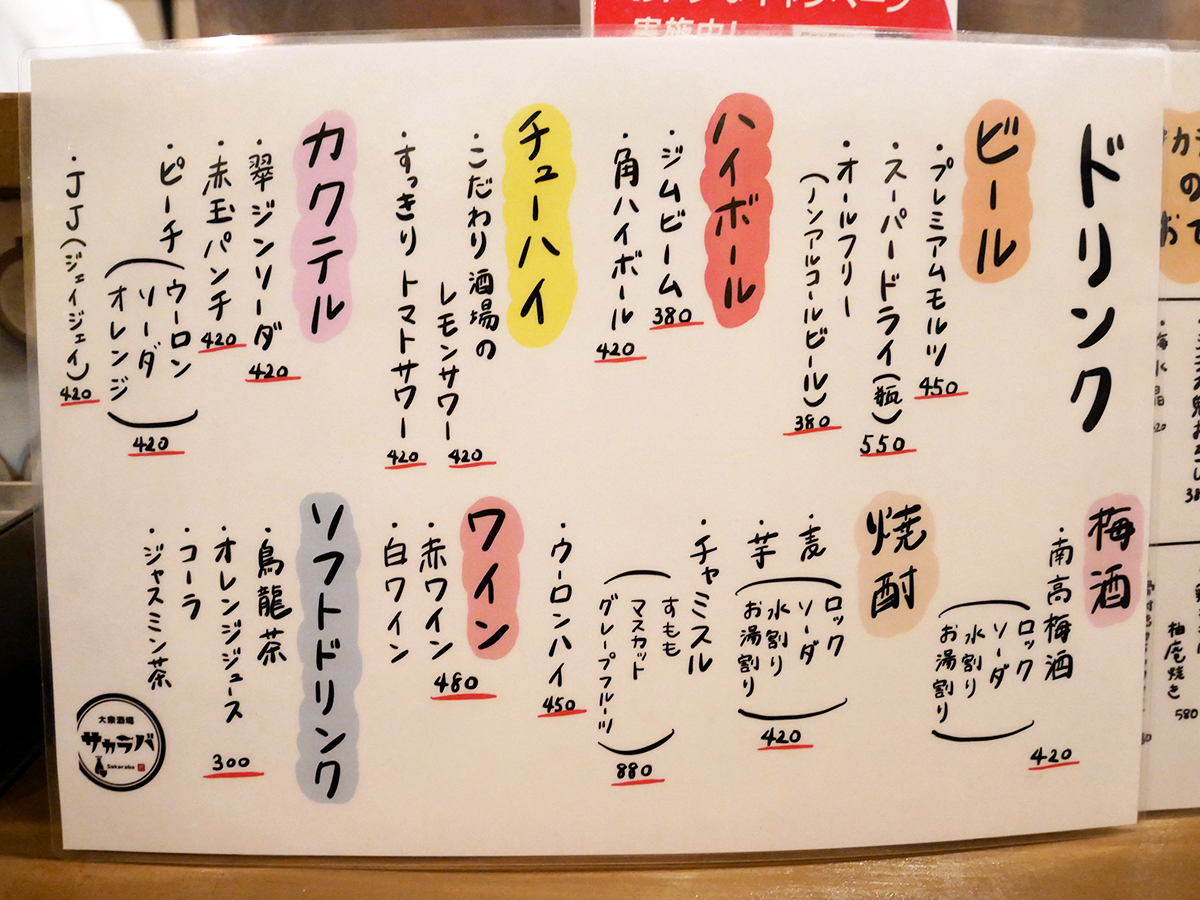 おトクなキャンペーン
実施中!
ドリンク
ビール
・プレミアムモルツ
450
・スーパードライ(瓶)
550
・オールフリー
(ノンアルコールビール)
380
ハイボール
・ジムビーム
380
・角ハイボール
420
チューハイ
・こだわり酒場の
レモンサワー
420
・すっきりトマトサワー
420
カクテル
・翠ジンソーダ
420
・赤玉パンチ
420
・ピーチ
(ウーロン
ソーダ
オレンジ)
420
・JJ(ジェイジェイ)
420
梅酒
・南高梅酒
(ロック
ソーダ
水割り
お湯割り)
420
焼酎
・麦
・芋
(ロック
ソーダ
水割り
お湯割り)
420
・チャミスル
(すもも
マスカット
グレープフルーツ)
880
・ウーロンハイ
450
ワイン
・赤ワイン
・白ワイン
480
ソフトドリンク
・烏龍茶
・オレンジジュース
・コーラ
・ジャスミン茶
300
大衆酒場
サカラバ
Sakaraba
柚庵焼き
580